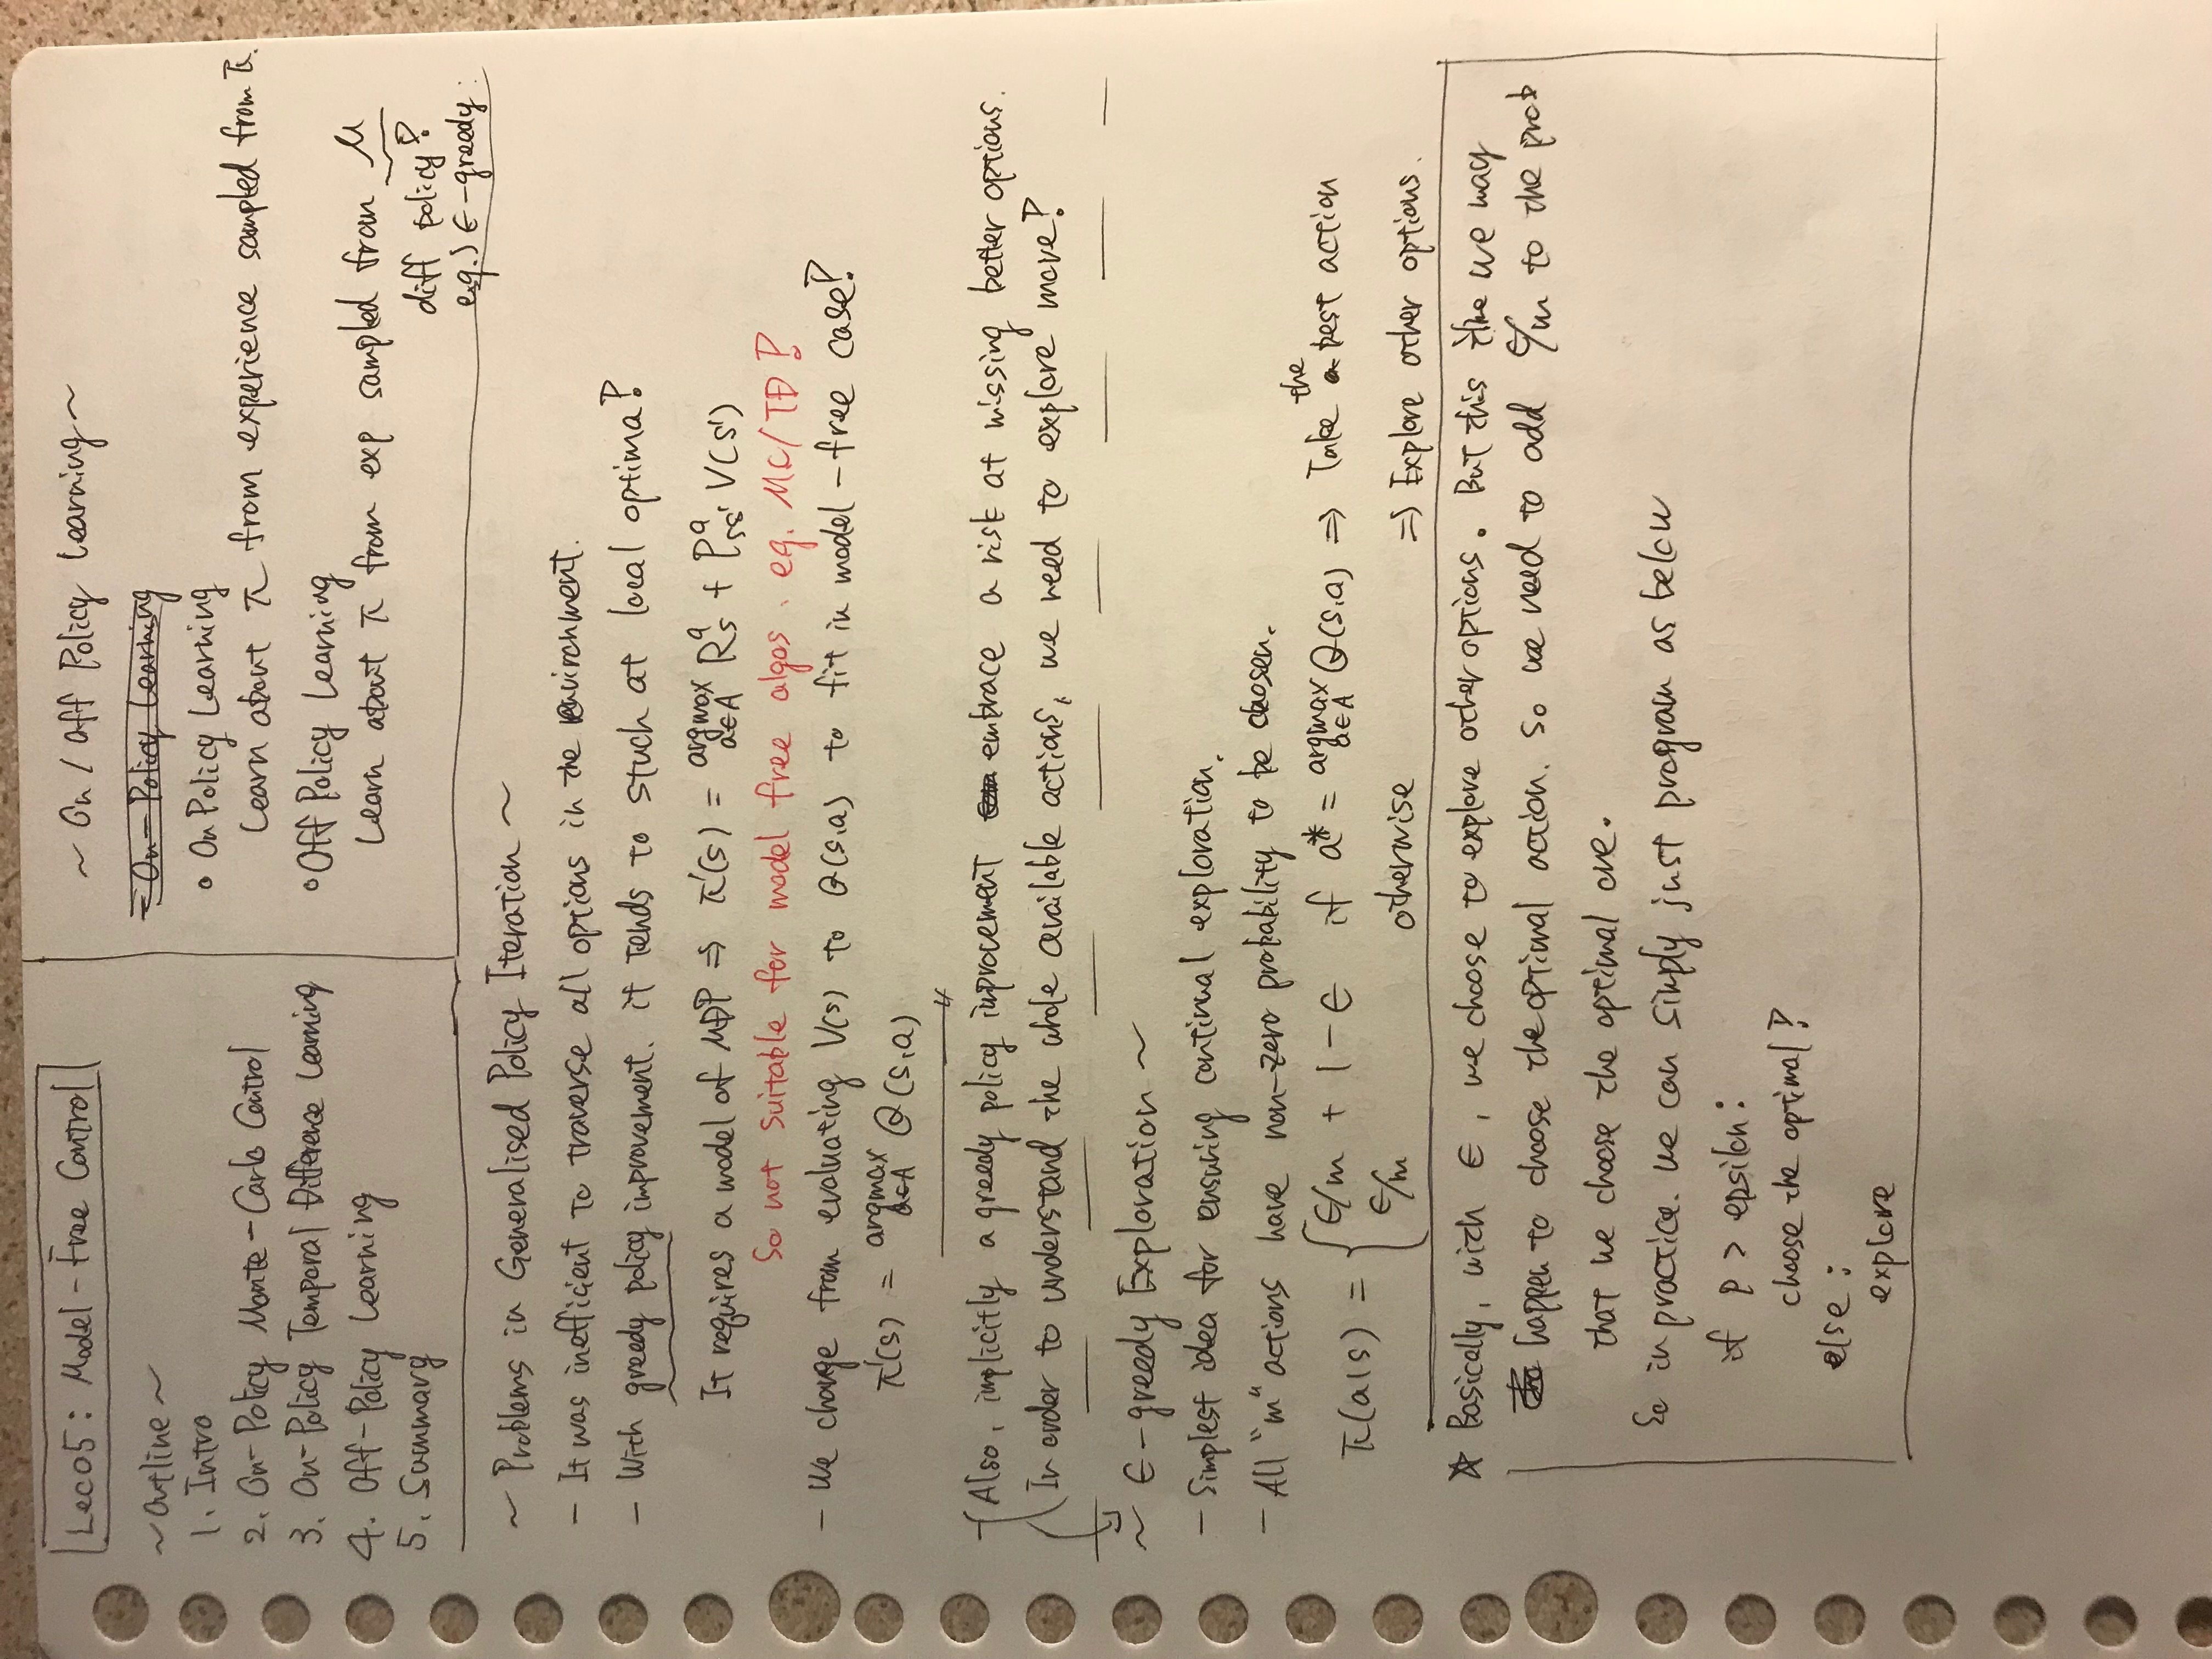 Lec05: Model-Free Control
~Outline~
1. Intro
2. On-Policy Monte-Carlo Control
3. On-Policy Temporal Difference Learning
4. Off-Policy Learning
5. Summary
~ On / Off Policy Learning ~
= On-Policy Learning
• On Policy Learning
Learn about π from experience sampled from π.
• Off Policy Learning
Learn about π from exp sampled from μ
diff policy!
e.g.) ε-greedy
~ Problems in Generalised Policy Iteration ~
- It was inefficient to traverse all options in the environment.
- With greedy policy improvement. it tends to stuck at local optima!
It requires a model of MDP ⇒ π'(s) = argmax a∈A R^a_s + P^a_ss' V(s')
So not suitable for model free algos. eg. MC/TD!
- We change from evaluating V(s) to Q(s,a) to fit in model-free case!
π'(s) = argmax a∈A Q(s,a)
Also, implicitly a greedy policy improvement embrace a risk at missing better options.
In order to understand the whole available actions, we need to explore more!
~ ε-greedy Exploration ~
- Simplest idea for ensuring continual exploration.
- All "m" actions have non-zero probability to be chosen.
π(a|s) = { ε/m + 1 - ε if a* = argmax a∈A Q(s,a) ⇒ Take the best action
ε/m otherwise ⇒ Explore other options.
☆ Basically, with ε, we choose to explore other options. But this time we may
happen to choose the optimal action. So we need to add ε/m to the prob
that we choose the optimal one.
So in practice. we can simply just program as below
if p > epsilon:
choose the optimal!
else:
explore